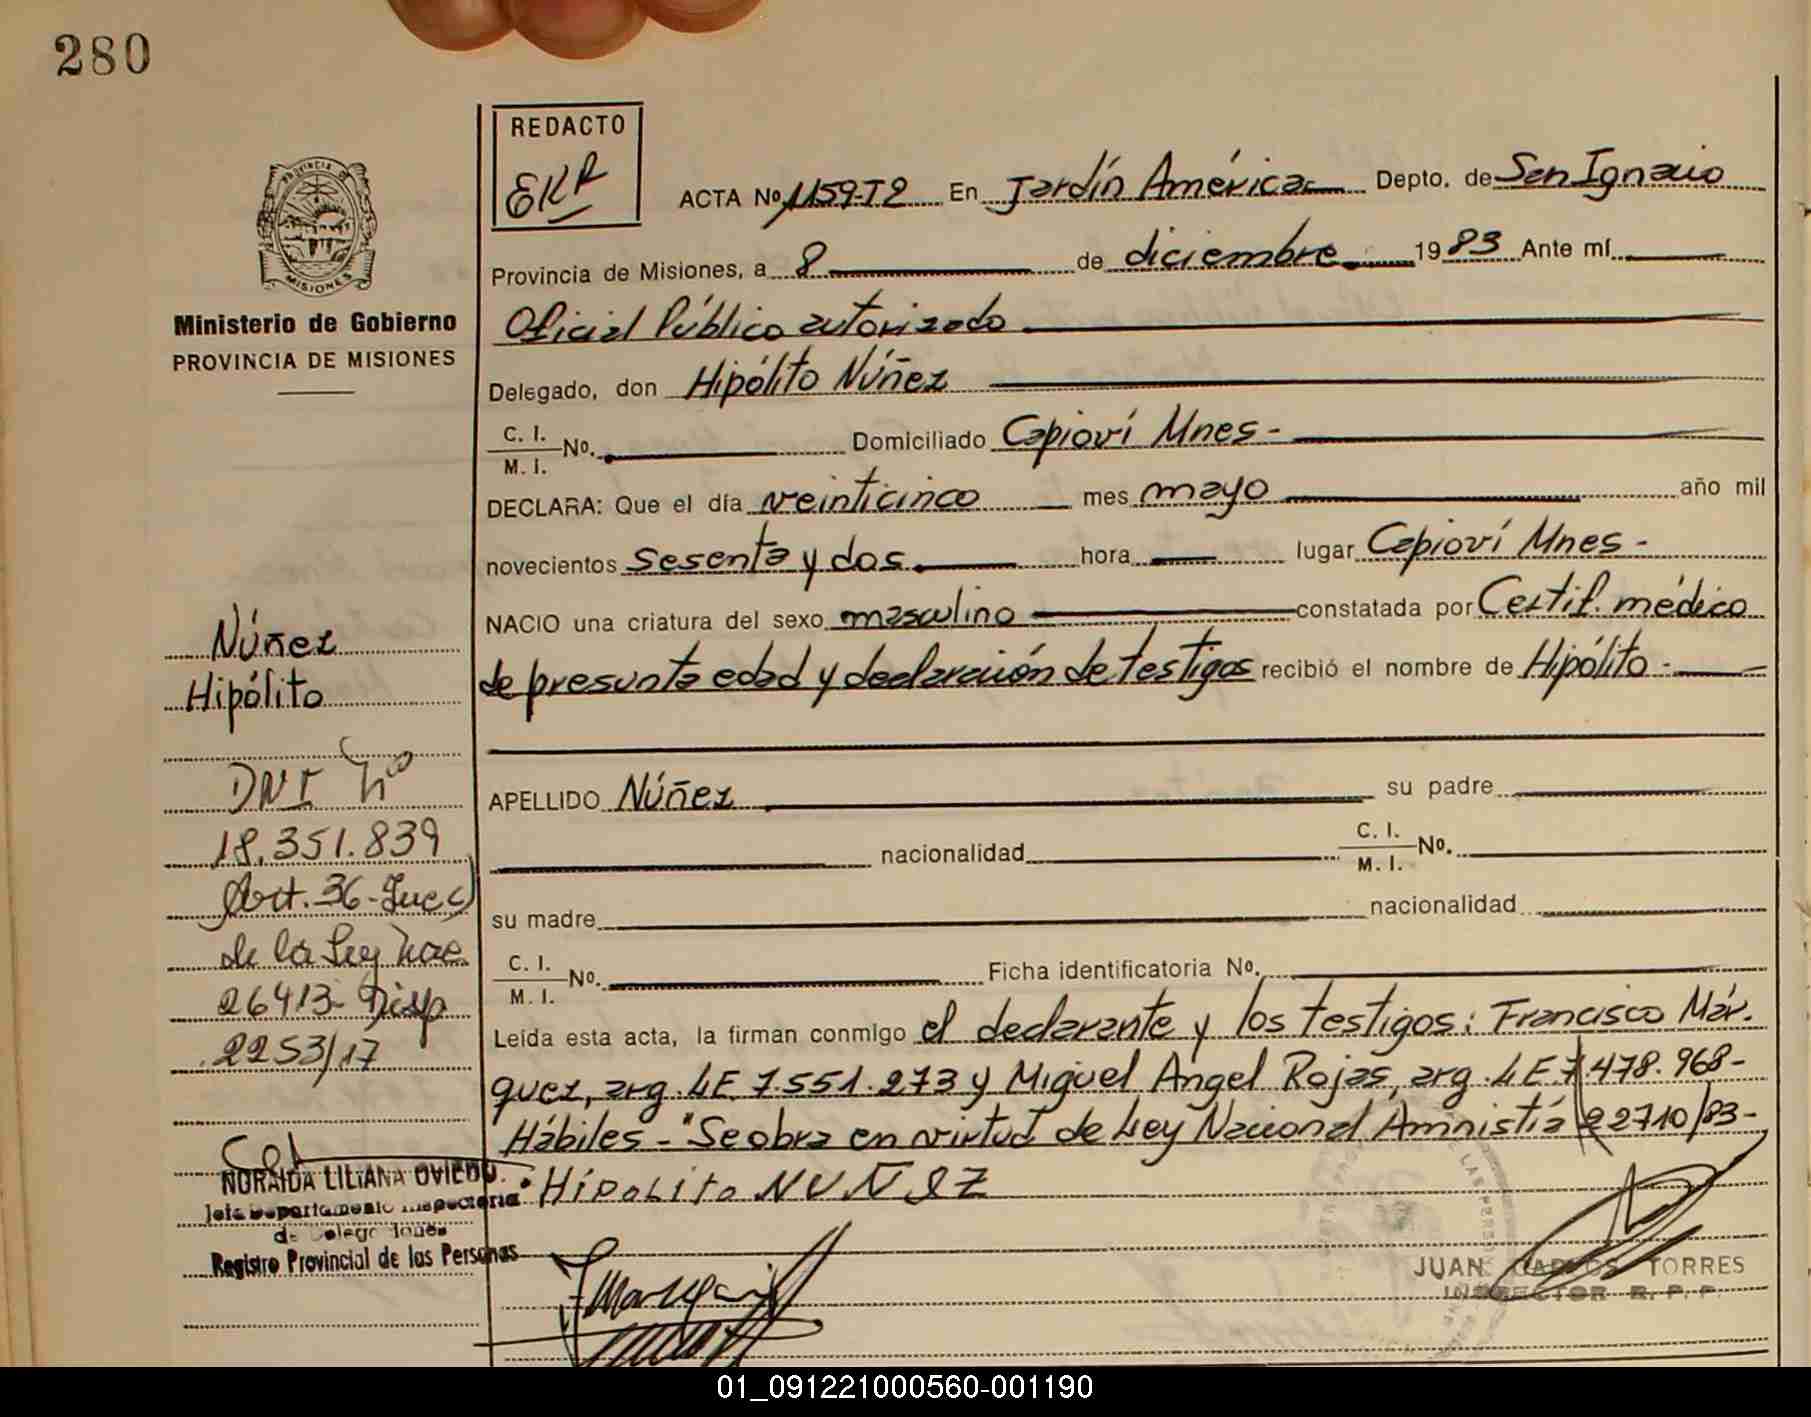 280
REDACTO
EKR
ACTA Nº 1159-T2 En Jardín América Depto. de San Ignacio
Provincia de Misiones, a 8 de diciembre 1983 Ante mí
Oficial Público autorizado
Delegado, don Hipólito Núñez
C. I.
M. I. Nº. Domiciliado Capioví Mnes -
DECLARA: Que el día veinticinco mes mayo año mil
novecientos sesenta y dos hora lugar Capioví Mnes -
NACIO una criatura del sexo masculino constatada por Certif. médico
de presunta edad y declaración de testigos recibió el nombre de Hipólito -
APELLIDO Núñez su padre
nacionalidad C. I.
M. I. Nº.
su madre nacionalidad
C. I.
M. I. Nº. Ficha identificatoria Nº.
Leída esta acta, la firman conmigo el declarante y los testigos: Francisco Már-
quez, arg. LE. 7.551.273 y Miguel Angel Rojas, arg. LE. 7.478.968-
Hábiles - "Se obra en virtud de Ley Nacional Amnistía 22710/83-
Hipolito NUÑEZ
JUAN CARLOS TORRES
INSPECTOR R. P. P.
PROVINCIA DE
MISIONES
Ministerio de Gobierno
PROVINCIA DE MISIONES
Núñez
Hipólito
DNI Nº
18.351.839
Art. 36-Inc c)
de la Ley Nac.
26413- Disp
2253/17
NORAIDA LILIANA OVIEDO
Jefa Departamento Inspectoria
de Delegaciones
Registro Provincial de las Personas
01_091221000560-001190